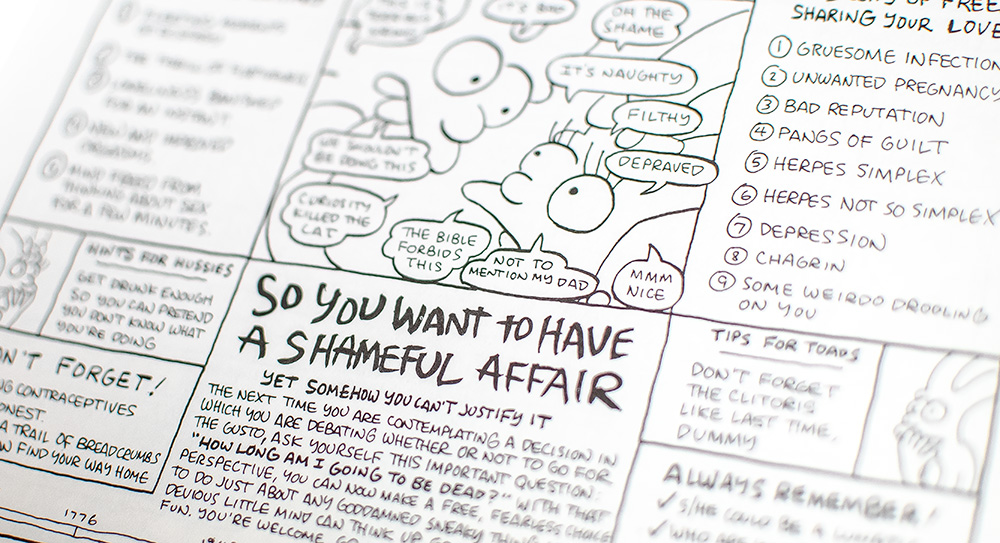 IT'S BAD
OH THE
SHAME
IT'S NAUGHTY
FILTHY
DEPRAVED
WE SHOULDN'T
BE DOING THIS
CURIOSITY
KILLED THE
CAT
THE BIBLE
FORBIDS
THIS
NOT TO
MENTION MY DAD
MMM
NICE
OF FREE
SHARING YOUR LOVE
① GRUESOME INFECTION
② UNWANTED PREGNANCY
③ BAD REPUTATION
④ PANGS OF GUILT
⑤ HERPES SIMPLEX
⑥ HERPES NOT SO SIMPLEX
⑦ DEPRESSION
⑧ CHAGRIN
⑨ SOME WEIRDO DROOLING
ON YOU
FOR AN INSTANT
④ NEW AND IMPROVED
ORGASMS
⑤ MIND FREED FROM
THINKING ABOUT SEX
FOR A FEW MINUTES.
HINTS FOR HUSSIES
GET DRUNK ENOUGH
SO YOU CAN PRETEND
YOU DON'T KNOW WHAT
YOU'RE DOING
N'T FORGET!
NG CONTRACEPTIVES
ONEST.
A TRAIL OF BREADCRUMBS
N FIND YOUR WAY HOME
1776
SO YOU WANT TO HAVE
A SHAMEFUL AFFAIR
YET SOMEHOW YOU CAN'T JUSTIFY IT
THE NEXT TIME YOU ARE CONTEMPLATING A DECISION IN
WHICH YOU ARE DEBATING WHETHER OR NOT TO GO FOR
THE GUSTO, ASK YOURSELF THIS IMPORTANT QUESTION:
"HOW LONG AM I GOING TO BE DEAD?" WITH THAT
PERSPECTIVE, YOU CAN NOW MAKE A FREE, FEARLESS CHOICE
TO DO JUST ABOUT ANY GODDAMNED SNEAKY THING
DEVIOUS LITTLE MIND CAN THINK UP. GO
FUN. YOU'RE WELCOME.
TIPS FOR TOADS
DON'T FORGET
THE CLITORIS
LIKE LAST TIME,
DUMMY
ALWAYS REMEMBER!
✓ S/HE COULD BE A
✓ WHO ARE